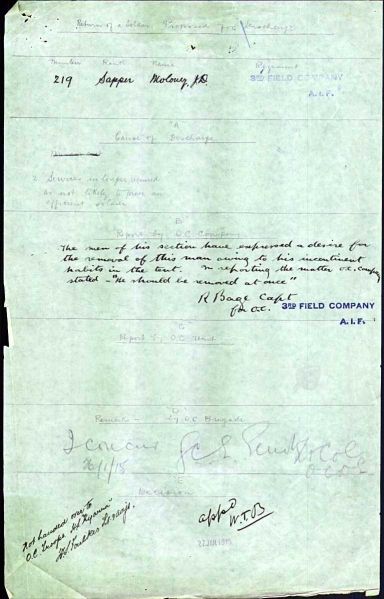 Return of a Soldier Proposed for Discharge
Number Rank Name Regiment
219 Sapper Moloney, J.D. 3RD FIELD COMPANY
A.I.F.
A
Cause of Discharge
2. Services no longer required
as not likely to prove an
efficient soldier
B
Report by O.C. Company
The men of his section have expressed a desire for
the removal of this man owing to his incontinent
habits in the tent. In reporting the matter O.C. Company
stated - "He should be removed at once"
R Bage Capt
for O.C. 3RD FIELD COMPANY
A.I.F.
C
Report by O.C. Unit
D
Remarks by O.C. Brigade
I concur
26/1/15 Lt Col
Decision
appd
W.T.B
27 JAN 1915
Not handed over to
O.C. Troops